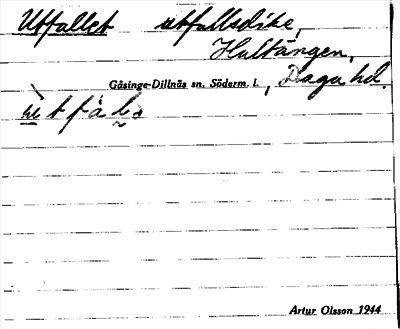 Utfallet utfallsdike,
Hultängen,
Gåsinge-Dillnäs sn. Söderm. l., Daga hd.
Artur Olsson 1944